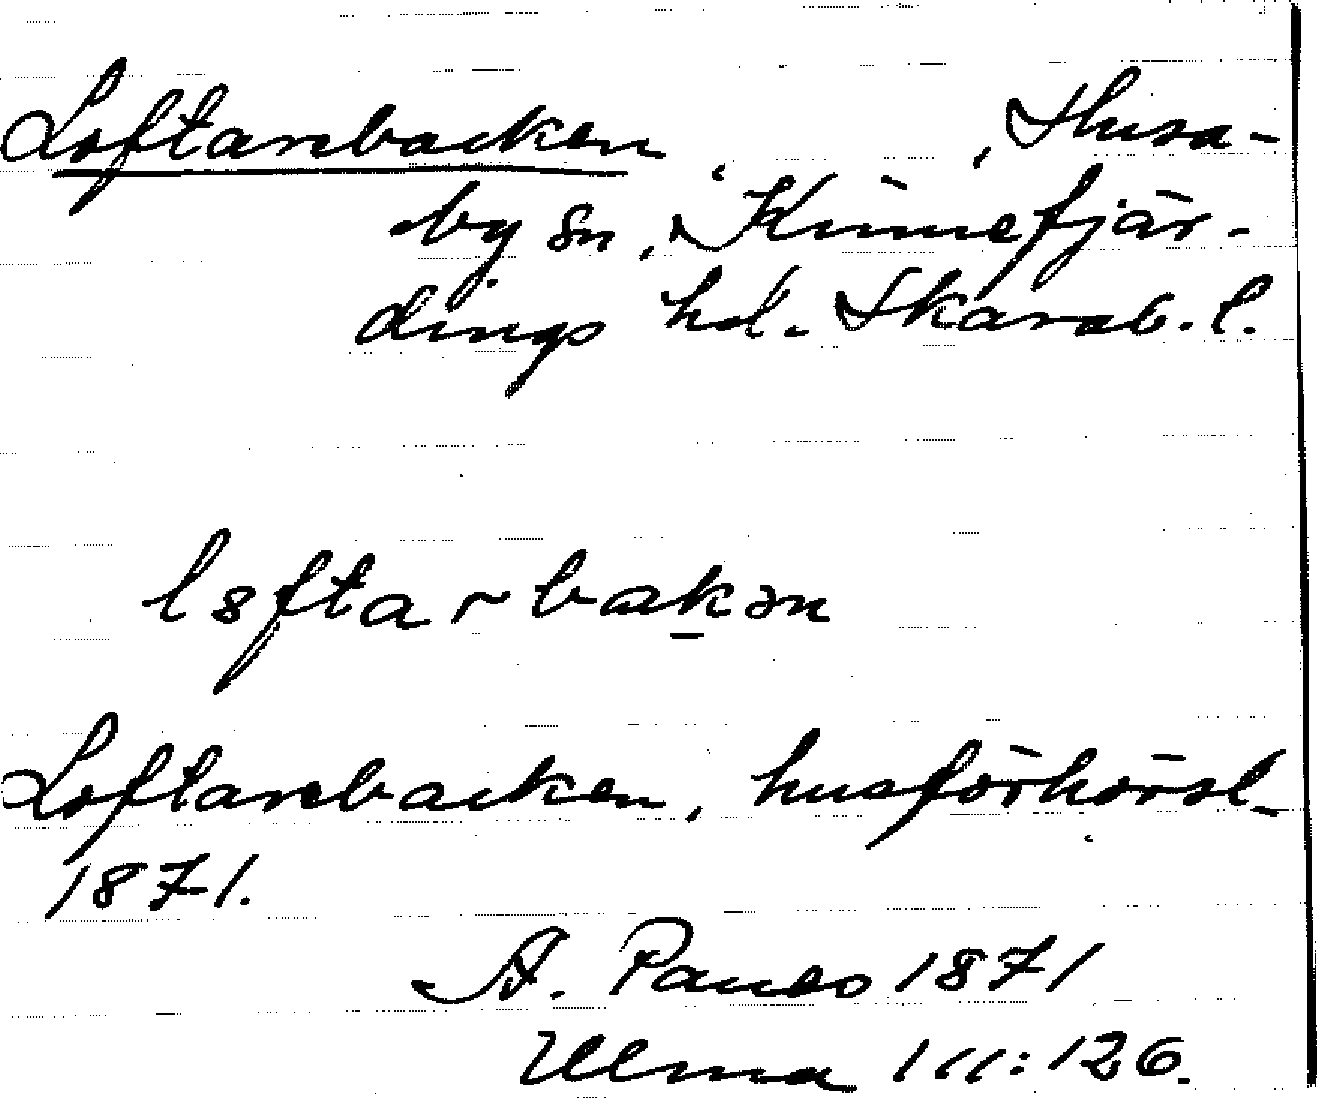 Loftarebacken, Husa-
by sn, Kinnefjär-
dings hd. Skarab. l.
lɔftarbakən
Loftarebacken, husförhörsl.
1871.
A. 1871
Ulma 111:126.